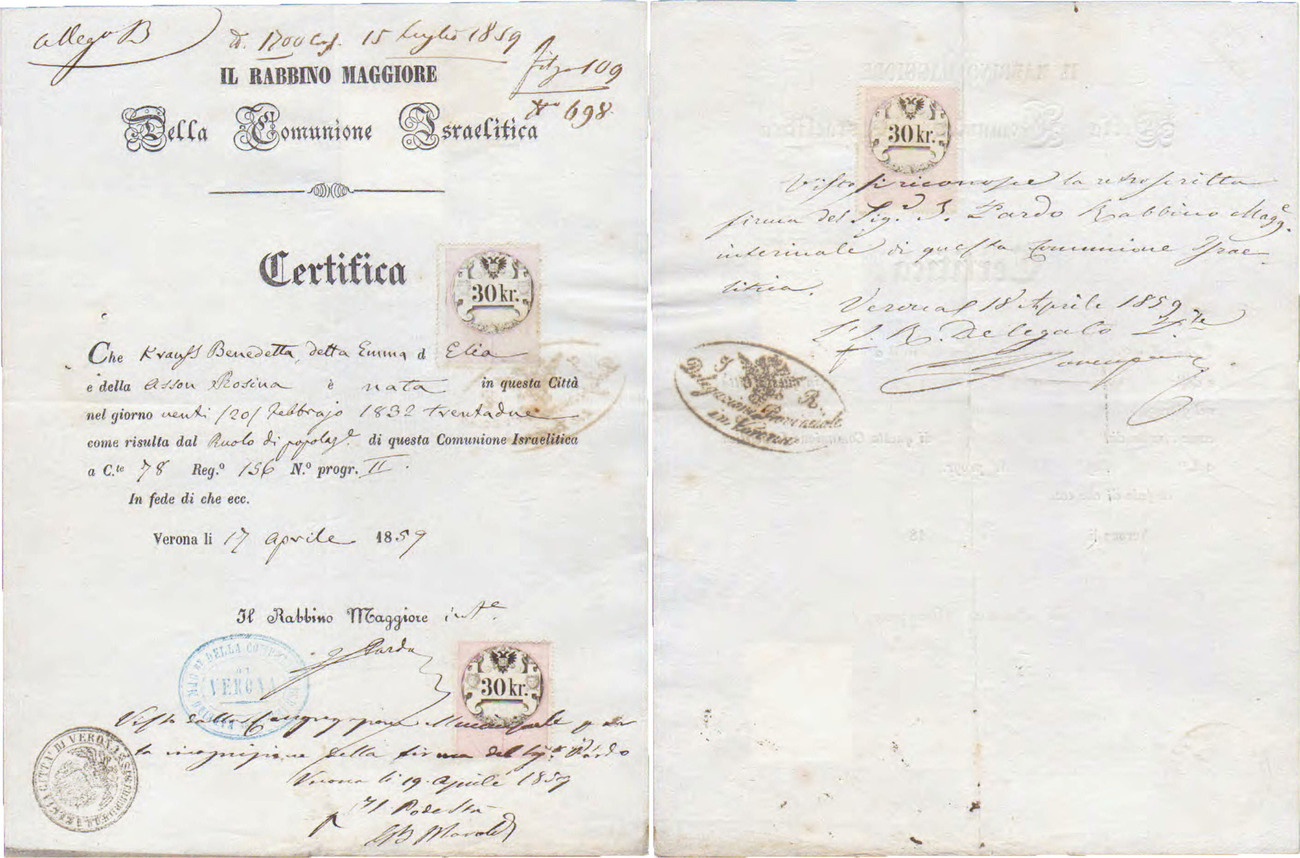 allegº B
15 Luglio 1859
109
698
IL RABBINO MAGGIORE
Della Comunione Israelitica
Certifica
30 kr.
Che Krauss Benedetta, detta Emma d Elia
e della Asson Rosina è nata in questa Città
nel giorno venti /20/ Febbrajo 1832 trentadue
come risulta dal Ruolo di popolazᵉ. di questa Comunione Israelitica
a C.te 78 Reg.º 156 N.º progr. II.
In fede di che ecc.
Verona li 17 aprile 1859
Il Rabbino Maggiore intᵉ.
Pardo
30 kr.
DELLA
VERONA
Visto dalla Congregazione Municipale per
la ricognizione della firma del Sigʳ. Pardo
Verona li 19 Aprile 1859
Il Podestà
CITTÀ DI VERONA
30 kr.
Visto si riconosce la retroscritta
firma del Sigʳ. Pardo Rabbino Maggᵉ.
interinale di questa Comunione Israe-
litica.
Verona 18 Aprile 1859
L'I. R. Delegato
I. R.
Delegazione Provinciale
in Verona